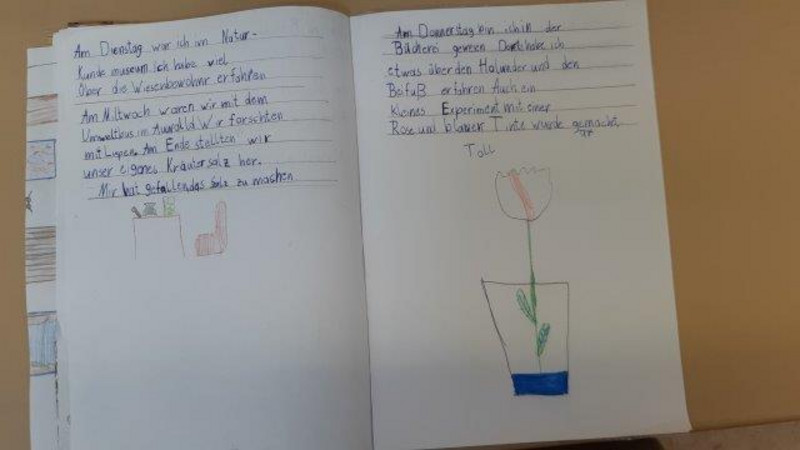 Am Dienstag war ich im Natur-
Kunde museum Ich habe viel
Über die Wiesenbewohnr erfahren
Am Mittwoch waren wir mit dem
Umweltbus im Auwald Wir forschten
mit Lupen. Am Ende stellten wir
unser eigenes Kräutersalz her.
Mir hat gefallen das Salz zu machen
Am Donnerstag bin ich in der
Bücherei gewesen Dort habe ich
etwas über den Holunder und den
Beifuß erfahren Auch ein
kleines Experiment mit einer
Rose und blauer Tinte wurde gemacht.
Toll